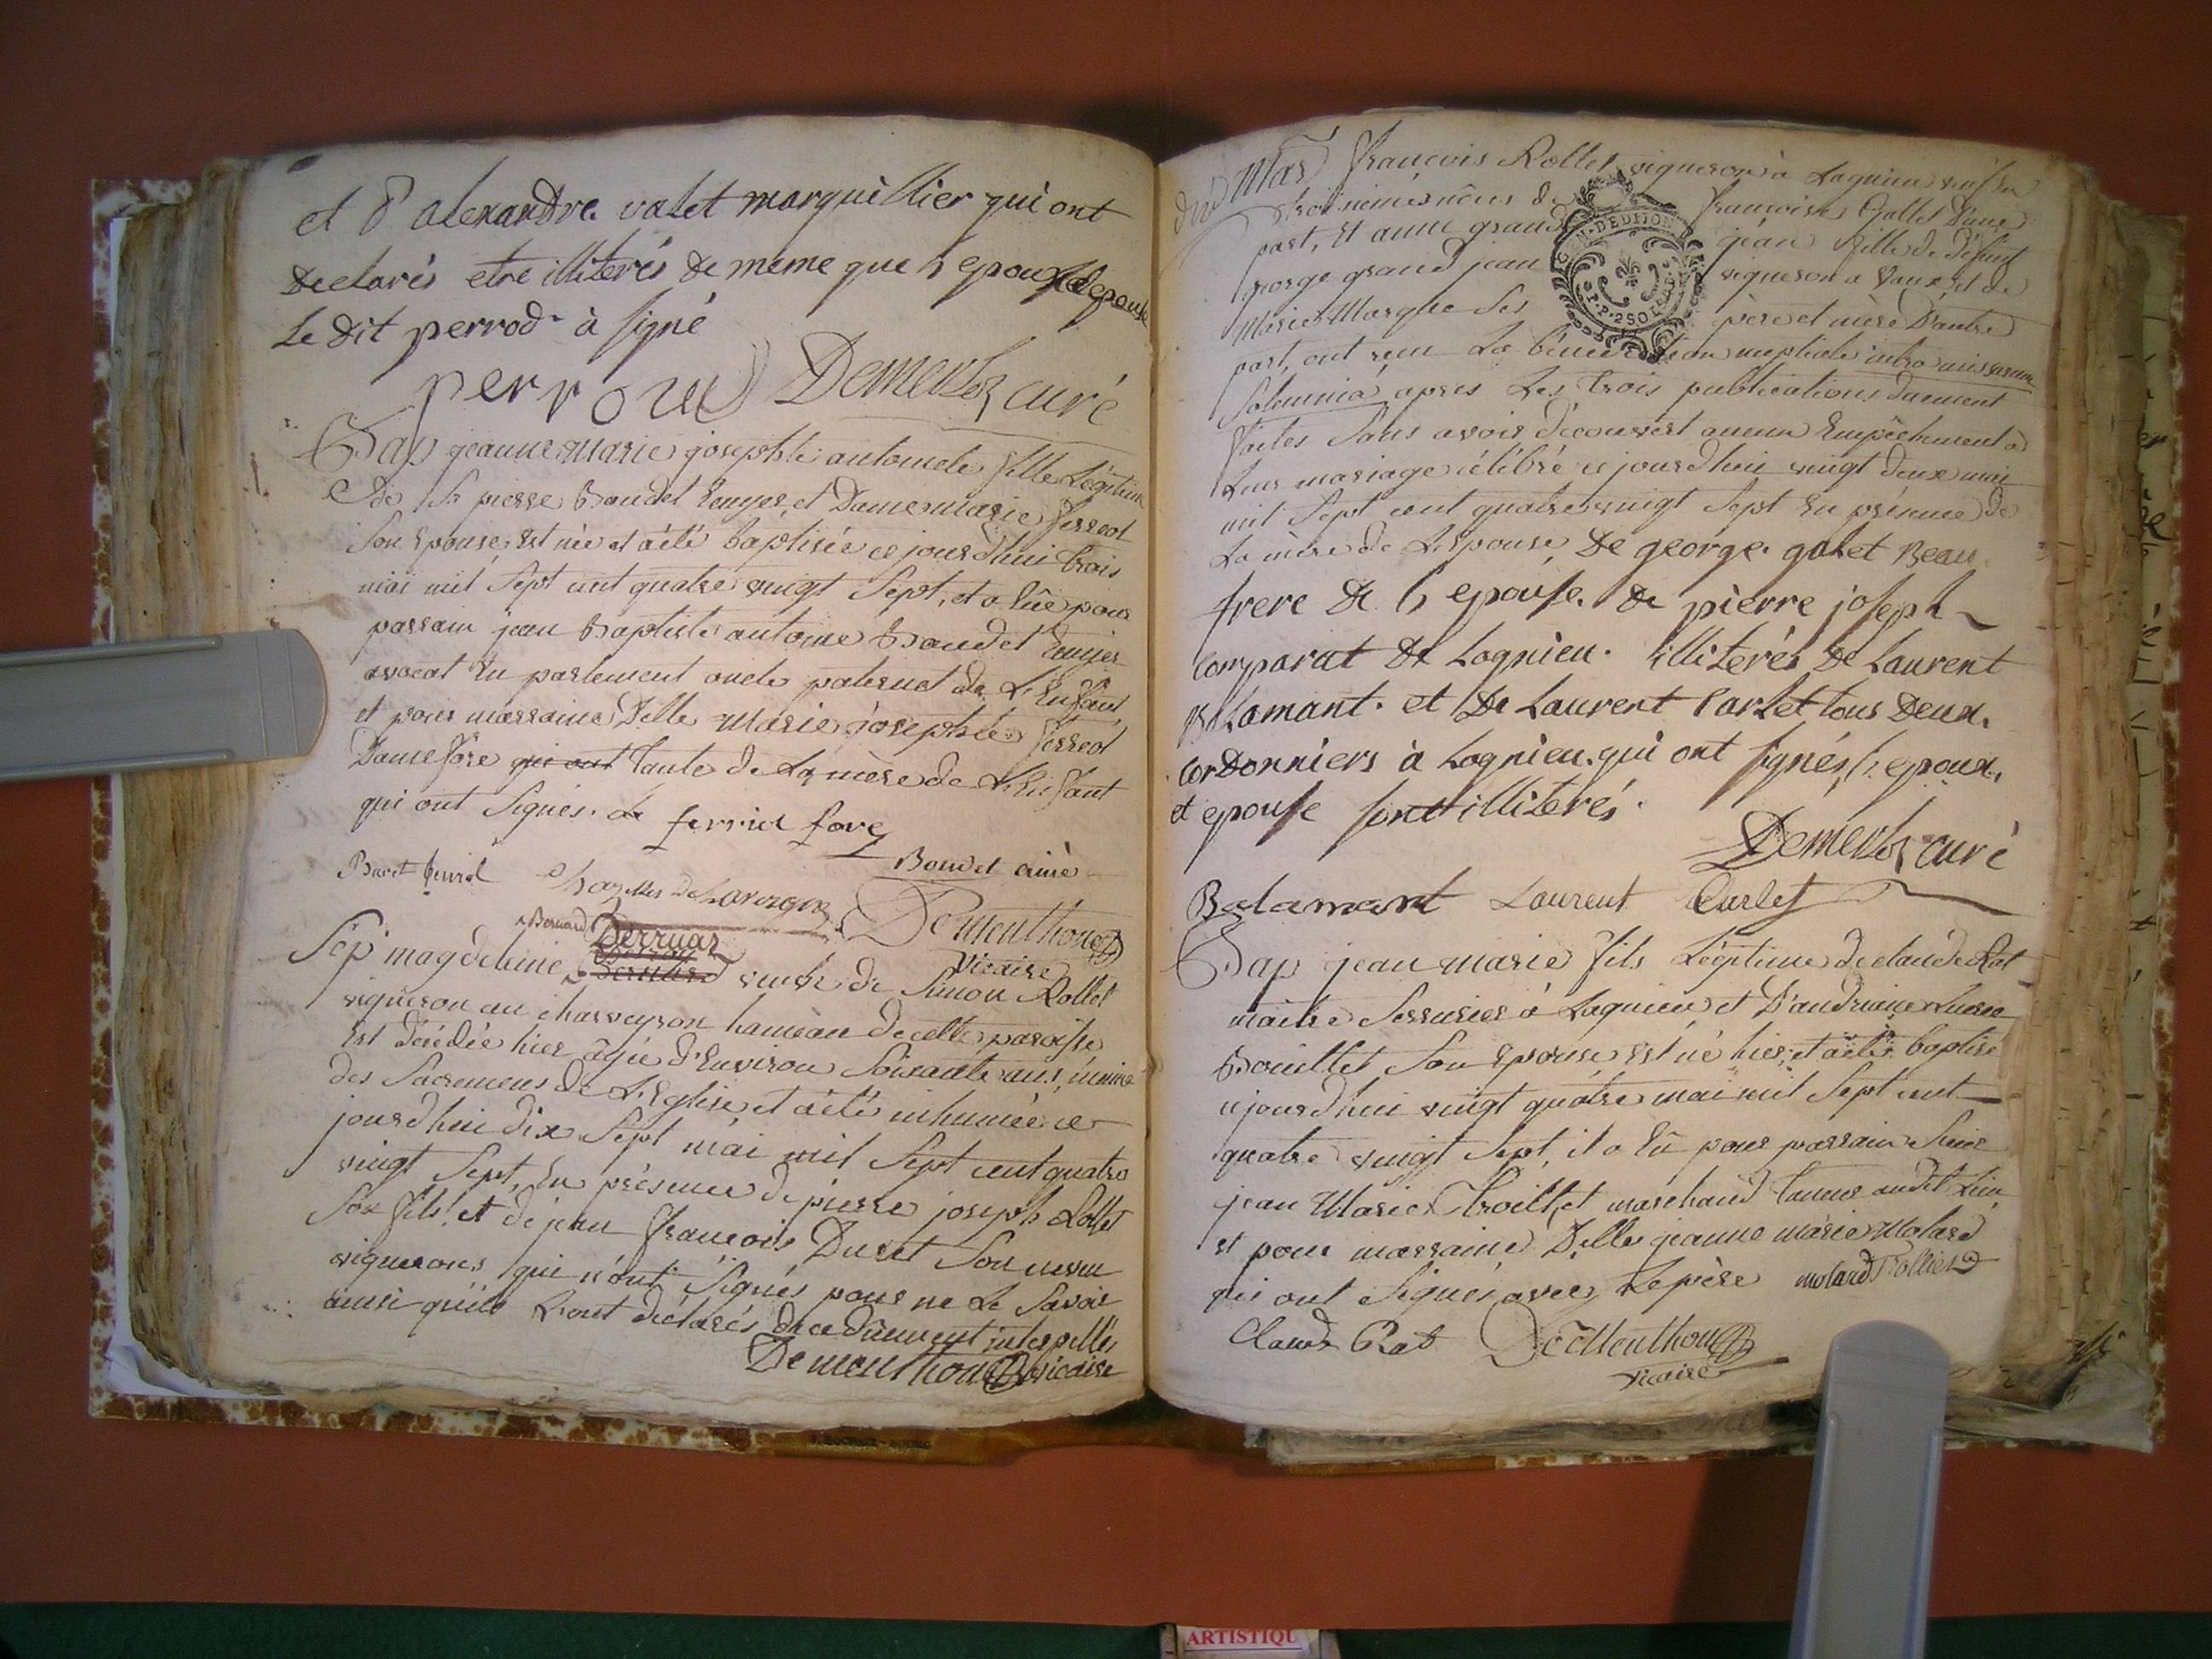 et d'alexandre valet marguillier qui ont
declarés etre illiterés de meme que l'epoux et l'epouse
Le dit perrod à signé
perroud Demerloz curé
Bap jeanne marie josephte antoinete fille Légitime
de Sr pierre Baudet Ecuyer, et Dame marie ferrod
son Epouse, est née et a été baptisée ce jourd'hui trois
mai mil sept cent quatre vingt Sept, et a Eue pour
parrain jean Baptiste antoine Baudet Ecuyer
avocat En parlement oncle paternel de L'Enfant,
et pour marraine Delle Marie josephte ferrod
Dame fore qui ont tante de La mère de L'Enfant
qui ont Signés.
ferrod fore
Boudet ainé
Dementhon
vicaire
Sép magdeleine Bernard veuve de Simon Rollet
vigneron au charveyron hameau de cette paroisse
Est décédée hier âgée d'Environ Soixante ans, munie
des Sacremens de L'Eglise et a été inhumée ce
jourd'hui dix Sept mai mil Sept cent quatre
vingt Sept, En présence de pierre joseph Rollet
Son fils, et de jean françois Duret Son neveu
vignerons, qui n'ont Signés pour ne Le Savoir
ainsi qu'ils L'ont déclarés de ce dûement interpellés
Dementhon vicaire
Mar françois Rollet vigneron à Lagnieu veuf En
troisiemes nôces de françoise Gallet d'une
part, Et anne grand jean fille de défunt
george grand jean vigneron a Vaux et de
Marie Marque Ses père et mère D'autre
part, ont reçu La bénédiction nuptiale intra missarum
Solemnia, après Les trois publications duement
faites Sans avoir découvert aucun Empêchement à
Leur mariage célébré ce jourd'hui vingt deux mai
mil Sept cent quatre vingt Sept En présence de
La mère de L'Epouse, De george galet Beau
frere de l'epouse. de pierre joseph
comparat de Lagnieu. illiterés de Laurent
Balamant. et de Laurent Carlet tous deux
cordonniers à Lagnieu. qui ont signés, l'epoux,
et epouse sont illiterés.
Demerloz curé
Balamant Laurent Carlet
Bap jean marie fils Légitime de claude Rat
maitre Serrurier à Lagnieu, et D'andriane
Bouillet Son Epouse, est né hier, et a été baptisé
cejourd'hui vingt quatre mai mil Sept cent
quatre vingt Sept, il a Eû pour parrain Sieur
jean Marie Trolliet marchand taneur audit Lieu,
et pour marraine Delle jeanne marie Molard
qui ont Signés avec Le père molard Trolliet
Claude Rat Dementhon
vicaire
ARTISTIQU